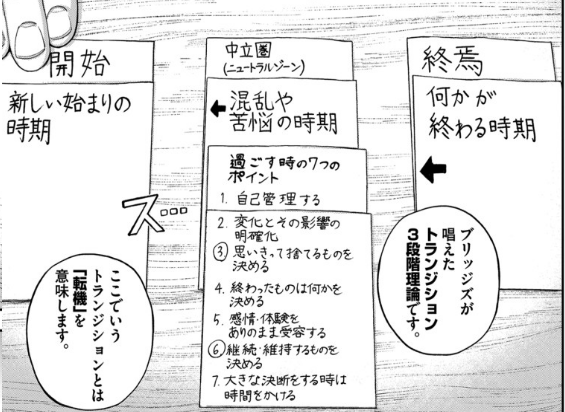 終焉
何かが
終わる時期
ブリッジズが
唱えた
トランジション
3段階理論です。
中立圏
(ニュートラルゾーン)
混乱や
苦悩の時期
過ごす時の7つの
ポイント
1. 自己管理する
2. 変化とその影響の
明確化
③思いきって捨てるものを
決める
4. 終わったものは何かを
決める
5. 感情・体験を
ありのまま受容する
⑥継続・維持するものを
決める
7. 大きな決断をする時は
時間をかける
開始
新しい始まりの
時期
ス…
ここでいう
トランジションとは
「転機」を
意味します。